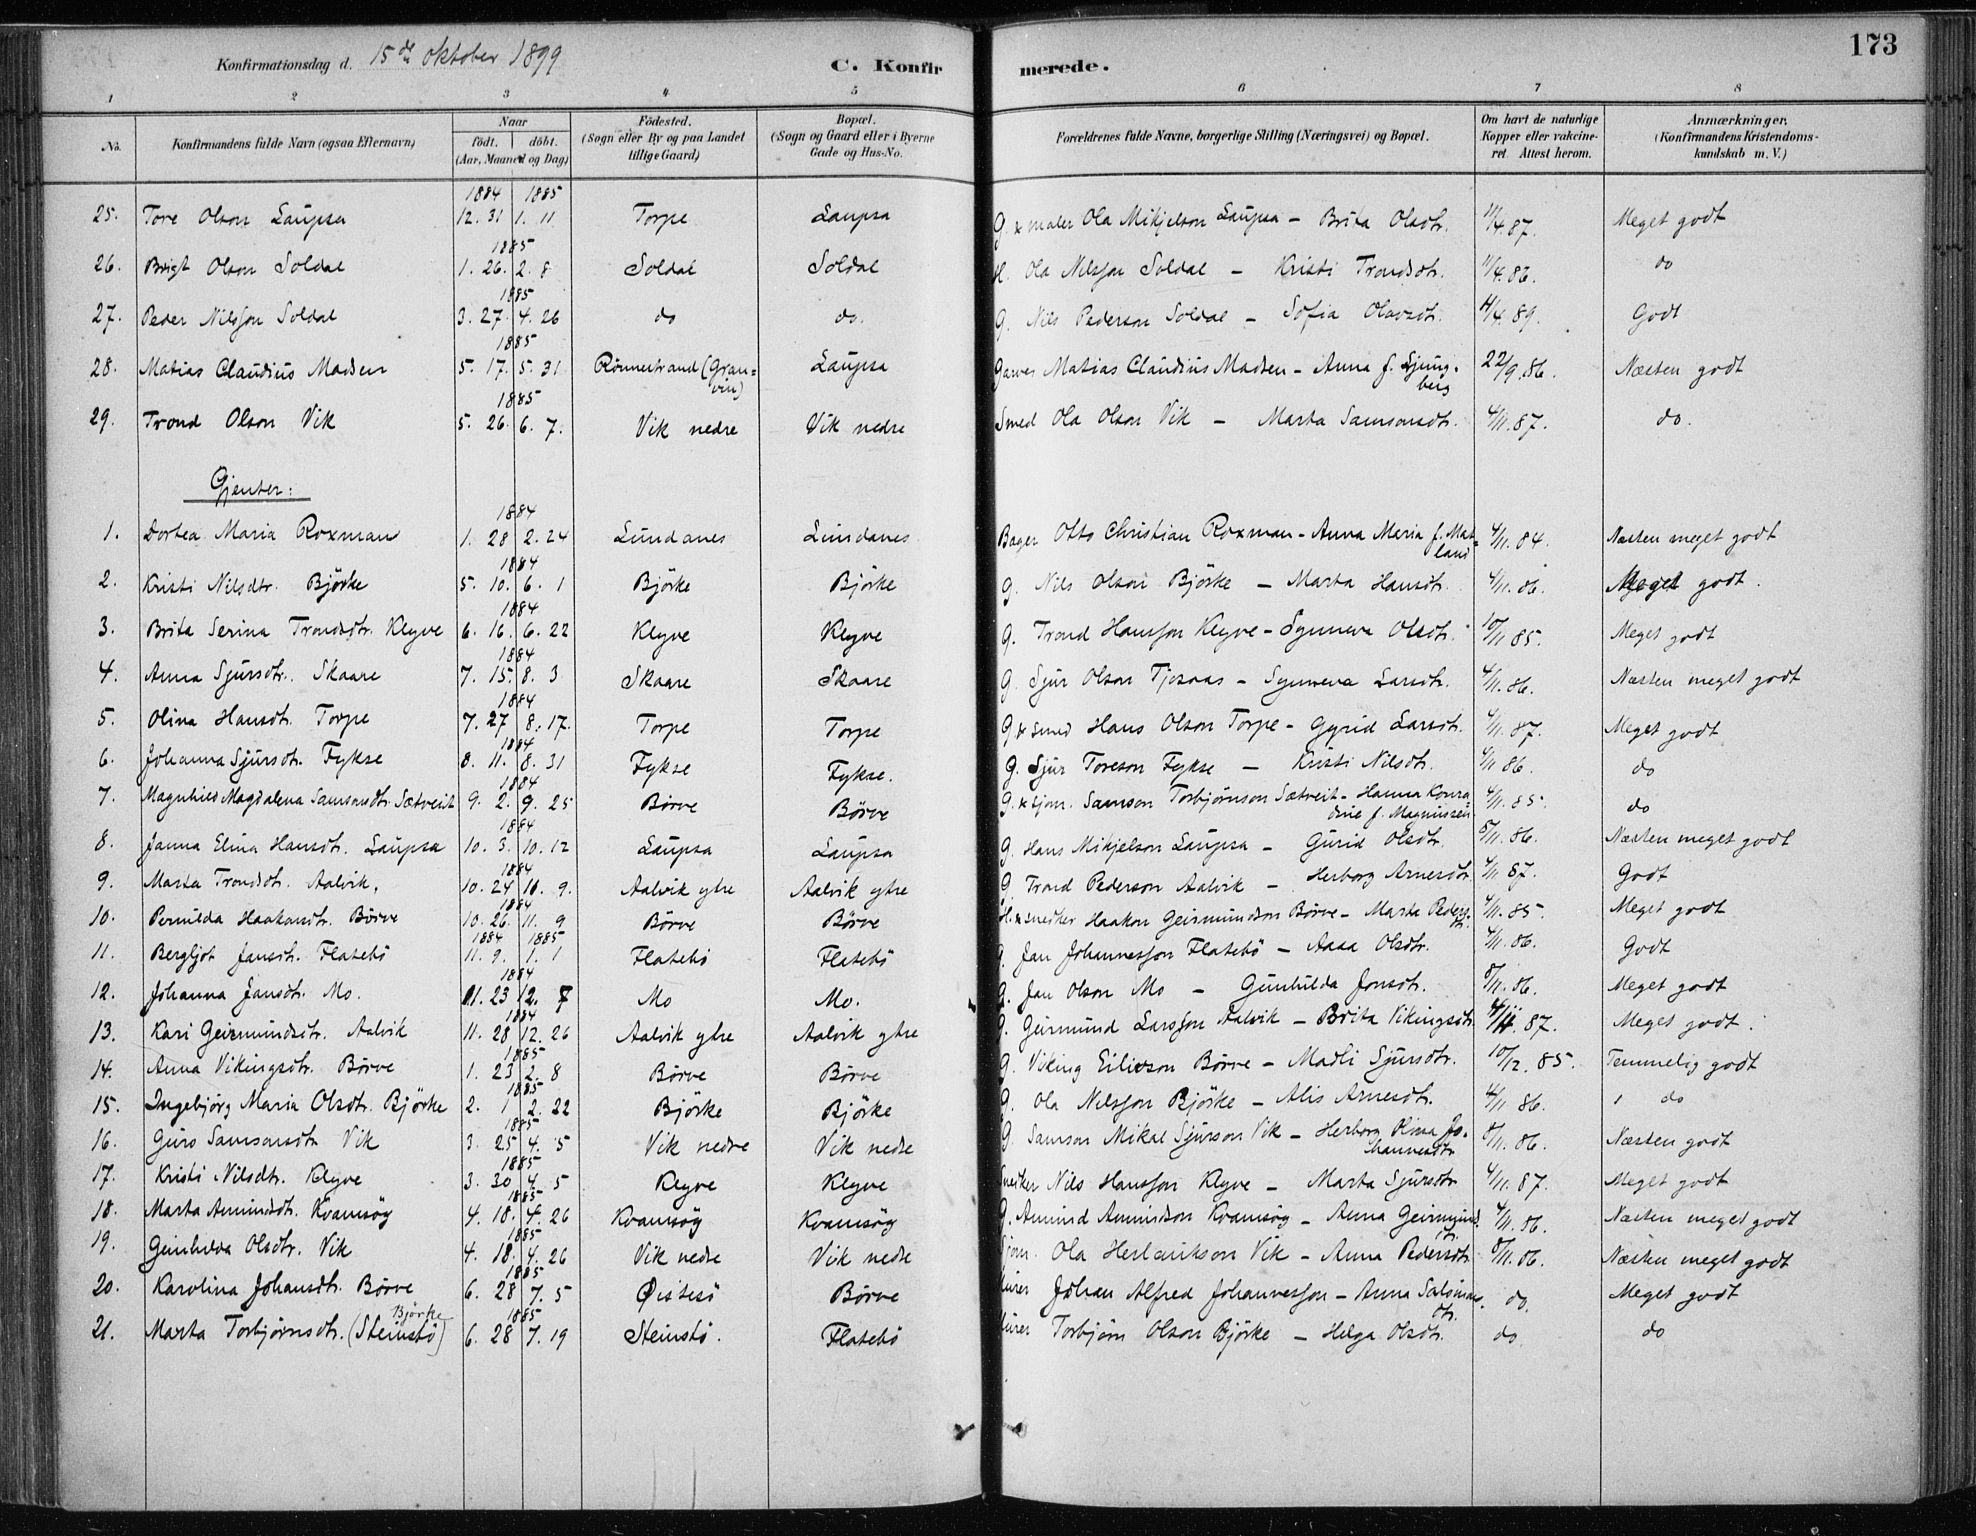 173
Konfirmationsdag d. 15de Oktober 1899 C. Konfirmerede.
1 2 3 4 5 6 7 8
No. Konfirmandens fulde Navn (ogsaa Efternavn) Naar födt. döbt. (Aar, Maaned og Dag) Födested. (Sogn eller By og paa Landet tillige Gaard) Bopæl. (Sogn og Gaard eller i Byerne Gade og Hus-No. Forældrenes fulde Navne, borgerlige Stilling (Næringsvei) og Bopæl. Om havt de naturlige Kopper eller vakcineret. Attest herom. Anmærkninger. (Konfirmandens Kristendomskundskab m. V.)
1884 1885
25. Tore Olson Laupsa 12. 31 1. 11 Torpe Laupsa G. & maler Ola Mikjelson Laupsa - Brita Olsdtr. 11/4. 87. Meget godt
1885
26. Brigt Olson Soldal 1. 26. 2. 8 Soldal Soldal H. Ola Nilsson Soldal - Kristi Trondsdtr. 11/4. 86. do
1885
27. Peder Nilsson Soldal 3. 27. 4. 26 do do. G. Nils Pederson Soldal - Sofia Olavsdtr. 4/4. 89. Godt
1885
28. Matias Claudius Madsen 5. 17. 5. 31 Rönnestrand (Granvin) Laupsa Garver Matias Claudius Madsen - Anna f. Ljungberg 22/9. 86. Næsten godt
1885
29. Trond Olson Vik 5. 26. 6. 7. Vik nedre Vik nedre Smed Ola Olson Vik - Marta Samsonsdtr. 4/11. 87. do.
Gjenter:
1884
1. Dortea Maria Roxman 1. 28 2. 24 Lundanes Lundanes Bager Otto Christian Roxman - Anna Maria f. Matland 4/11. 84. Næsten meget godt
1884
2. Kristi Nilsdtr. Björke 5. 10. 6. 1 Björke Björke G. Nils Olson Björke - Marta Hansdtr. 4/11. 86. Meget godt.
1884
3. Brita Serina Trondsdtr. Klyve 6. 16. 6. 22 Klyve Klyve G. Trond Hansson Klyve - Synneva Olsdtr. 10/11 85. Meget godt
1884
4. Anna Sjursdtr. Skaare 7. 15. 8. 3 Skaare Skaare G. Sjur Olson Tjosaas - Synneva Larsdtr. 4/11. 86. Næsten meget godt
1884
5. Olina Hansdtr. Torpe 7. 27 8. 17. Torpe Torpe G & smed Hans Olson Torpe - Gyrid Larsdtr. 4/11. 87. Meget godt
1884
6. Johanna Sjursdtr. Fykse 8. 11. 8. 31 Fykse Fykse. G. Sjur Toreson Fykse - Kristi Nilsdtr. 4/11 86. do
1884
7. Magnhild Magdalena Samsonsdtr. Sætveit 9. 2. 9. 25 Börve Börve G. & sjom. Samson Torbjörnson Sætveit - Hanna Konradine f. Magnussen 4/11. 85. do
1884
8. Janna Elina Hansdtr. Laupsa 10. 3. 10. 12 Laupsa Laupsa G. Hans Mikjelson Laupsa - Gurid Olsdtr. 5/11. 86. Næsten meget godt
1884
9. Marta Trondsdtr. Aalvik, 10. 24 11. 9. Aalvik ytre Aalvik ytre G. Trond Pederson Aalvik - Herborg Arnesdtr. 4/11 87. Godt
1884
10. Pernilda Haakonsdtr. Börve 10. 26. 11. 9 Börve Börve H. & snedker Haakon Geirmundson Börve - Marta Pedersdtr. 4/11. 85. Meget godt
1884 1885
11. Bergljot Jansdtr. Flatebö 11. 9. 1. 1 Flatebö Flatebö G. Jan Johannesson Flatebö - Aasa Olsdtr. 4/11. 86. Godt
1884
12. Johanna Jansdtr. Mo. 11. 23 12. 7 Mo Mo. G. Jan Olson Mo - Gunhilda Jonsdtr. 5/11. 86. Meget godt
1884
13. Kari Geirmundsdtr. Aalvik 11. 28 12. 26 Aalvik ytre Aalvik ytre G. Geirmund Larsson Aalvik - Brita Vikingsdtr. 4/11. 87. Meget godt.
1885
14. Anna Vikingsdtr. Börve 1. 23 2. 8 Börve Börve G. Viking Eilivson Börve - Madli Sjursdtr. 10/12. 85. Temmelig godt
1885
15. Ingebjörg Maria Olsdtr. Björke 2. 1 2. 22 Björke Björke G. Ola Nilsson Björke - Alis Arnesdtr. 4/11 86. do
1885
16. Guro Samsonsdtr. Vik 3. 25 4. 5 Vik nedre Vik nedre G. Samson Mikal Sjurson Vik - Herborg Johannesdtr. 5/11. 86. Næsten godt
1885
17. Kristi Nilsdtr. Klyve 3. 30 4. 5 Klyve Klyve Snedker Nils Hansson Klyve - Marta Sjursdtr 4/11. 87. Meget godt
1885
18. Marta Amundsdtr. Kvamsöy 4. 18. 4. 26 Kvamsöy Kvamsöy G. Amund Amundson Kvamsöy - Anna Geirmundsdtr. 4/11. 86. Næsten meget godt
1885
19. Gunhilda Olsdtr. Vik 4. 18. 4. 26 Vik nedre Vik nedre Sjom. Ola Herlaukson Vik - Anna Pedersdtr. 5/11. 86. Næsten meget godt
1885
20. Karolina Johansdtr. Börve 6. 28 7. 5 Östesö Börve Johan Alfred Johannesson - Anna Salomonsdtr. do. Meget godt
1885
21. Marta Torbjörnsdtr. (Steinstö) Björke 6. 28 7. 19 Steinstö. Flatebö Torbjörn Olson Björke - Helga Olsdtr. do do